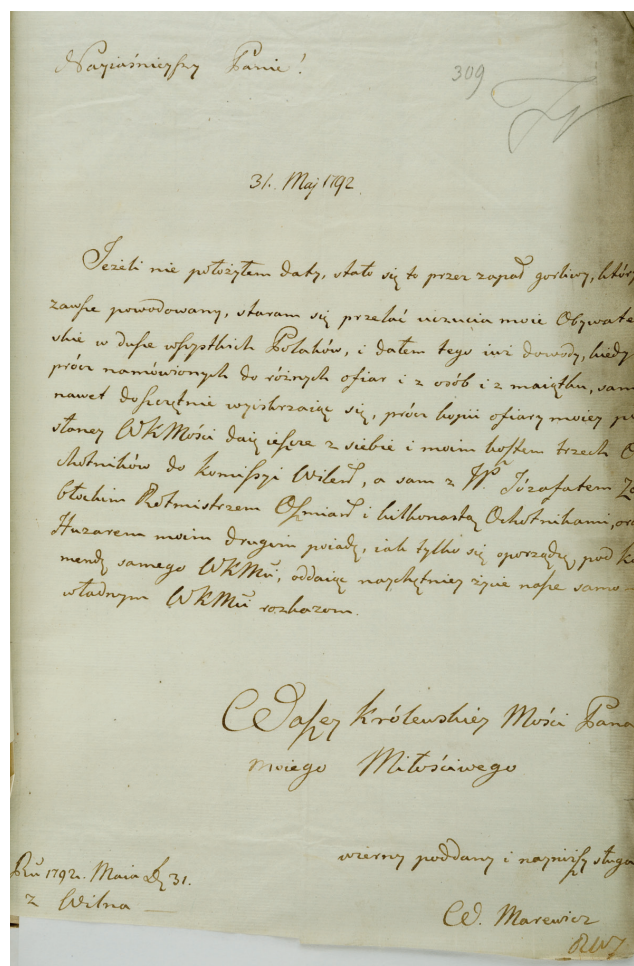 Nayiaśnieyszy Panie!
309
31. Maj 1792
Jeżeli nie położyłem daty, stało się to przez zapał gorliwy, który
zawsze powodowany, staram się przelać uczucia moie Obywate
skie w dusze wszystkich Polaków, i dałem tego iuż dowody, kiedy
prócz namówionych do różnych ofiar i z osób i z maiątku, sam
nawet doszczętnie wyiskrzaiąc się, prócz kopii ofiary moiey
słaney WKMości daię ieszcze z siebie i moim kosztem trzech O
chotników do Komissyi Wileń, a sam z JP. Józafatem
błockim Rotmistrzem Oszmiań i kilkonastą Ochotnikami, or
Huzarem moim drugim poiadę, iak tylko się oporządzę, pod ko
mendę samego WKMci, oddaiąc naychętniey życie nasze samo-
władnym WKMci rozkazom.
Waszey Królewskiey Mości Pana
moiego Miłościwego
wierny poddany i nayniższy sługa
Ru 1792. Maia Dn 31.
z Wilna
W. Marewicz